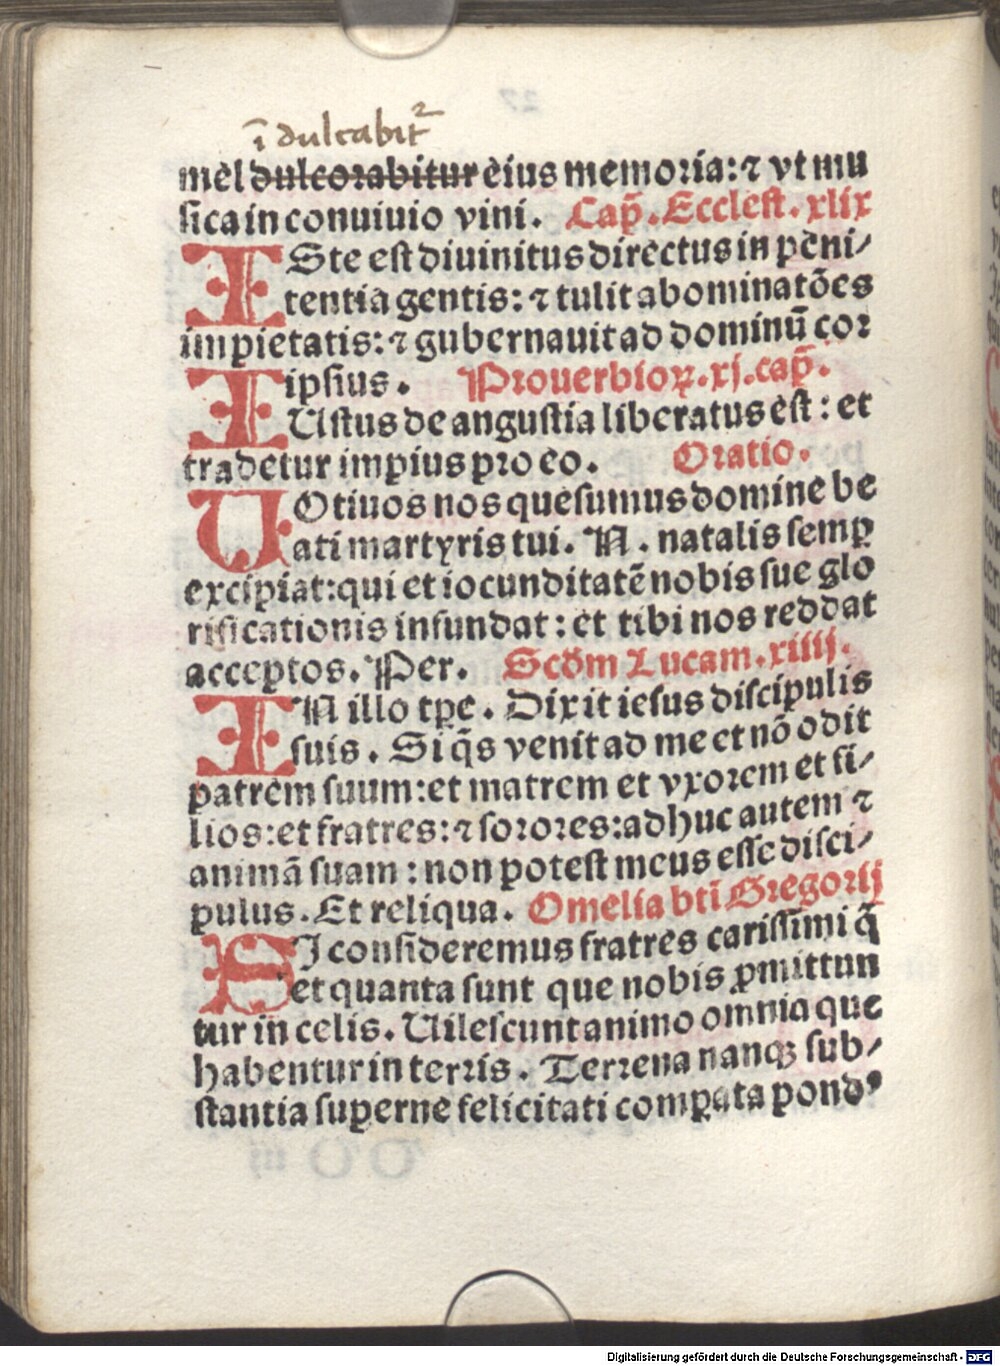 ī dulcabit᷑
mel dulcorabitur eius memoria: ⁊ vt mu
sica in conuiuio vini. Cap̄. Ecclest. xlix
ISte est diuinitus directus in peni/
tentia gentis: ⁊ tulit abominatōes
impietatis: ⁊ gubernauit ad dominū cor
ipsius. Prouerbioꝝ. xj. cap̄.
IUstus de angustia liberatus est: et
tradetur impius pro eo. Oratio.
UOtiuos nos quesumus domine be
ati martyris tui. N. natalis semꝑ
excipiat: qui et iocunditatē nobis sue glo
rificationis infundat: et tibi nos reddat
acceptos. Per. Scd̄m Lucam. xiiij.
IN illo tp̄e. Dixit iesus discipulis
suis. Si q̄s venit ad me et nō odit
patrem suum: et matrem et vxorem et fi/
lios: et fratres: ⁊ sorores: adhuc autem ⁊
animā suam: non potest meus esse disci/
pulus. Et reliqua. Omelia bt̄i Gregorij
SI consideremus fratres carissimi q̄
et quanta sunt que nobis ꝓmittun
tur in celis. Uilescunt animo omnia que
habentur in terris. Terrena nanqꝫ sub/
stantia superne felicitati comꝑata pondꝰ
Digitalisierung gefördert durch die Deutsche Forschungsgemeinschaft - DFG